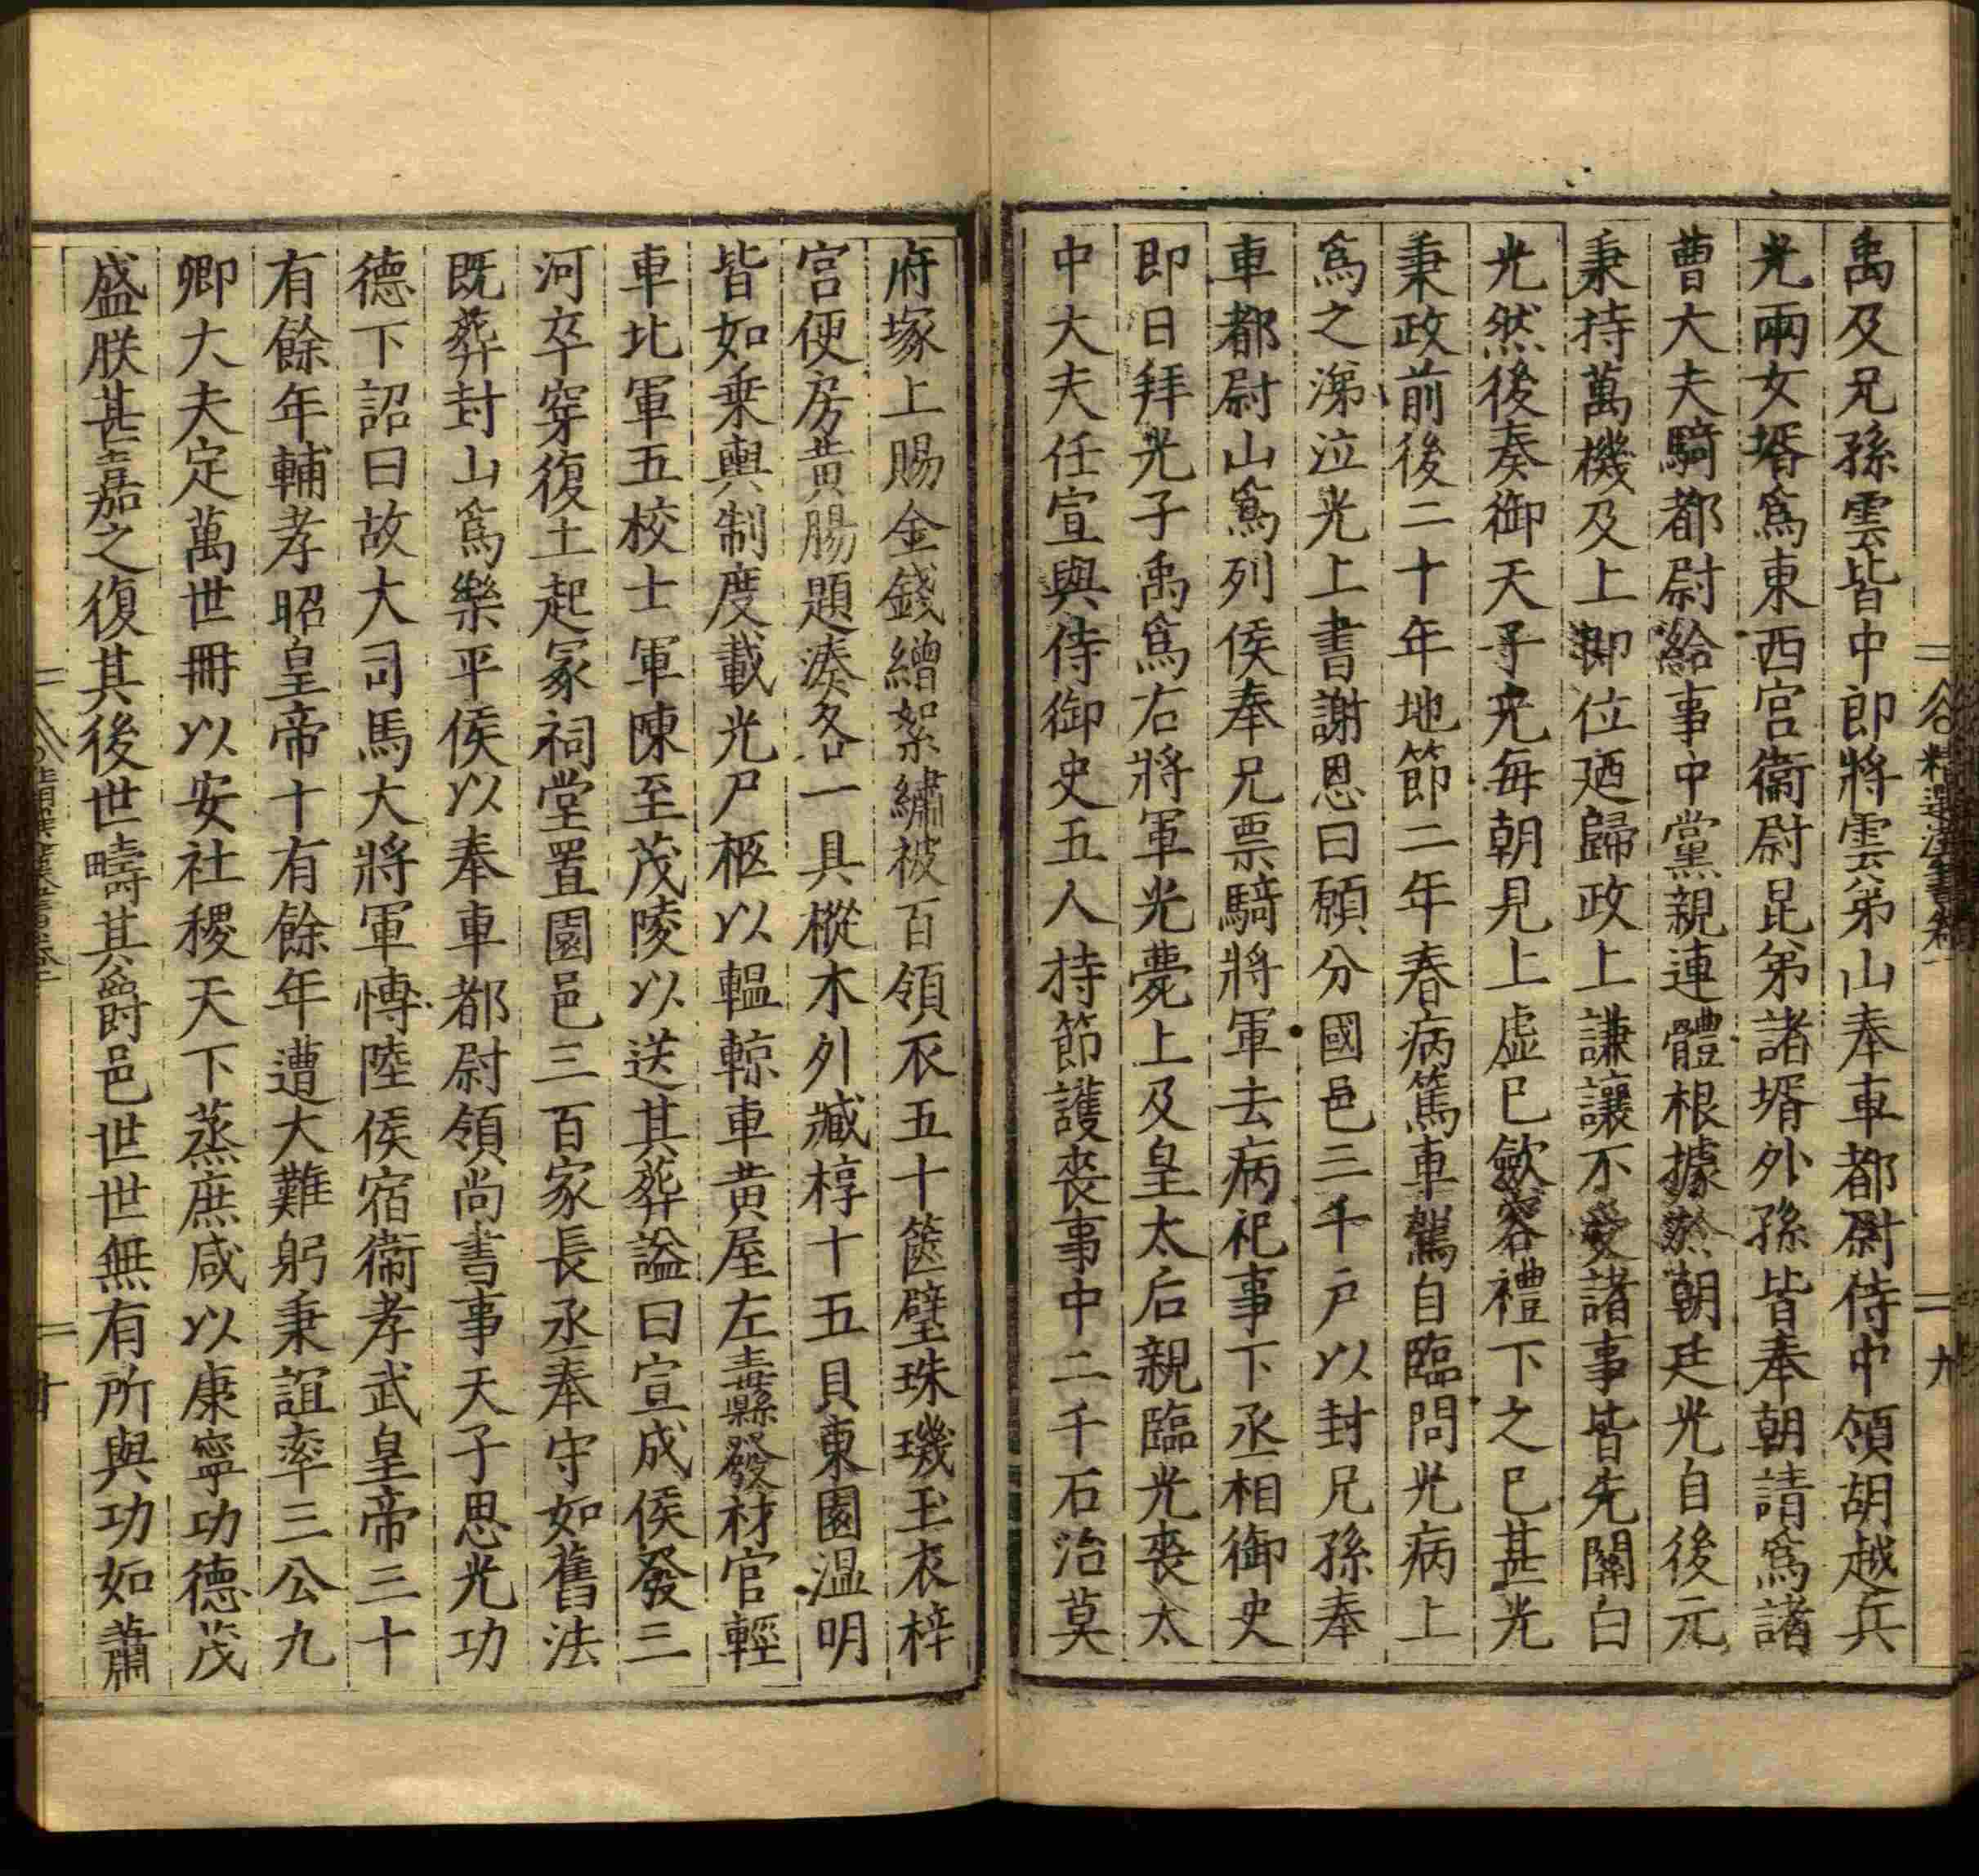 禹及兄孫雲皆中郎將雲弟山奉車都尉侍中領胡越兵
光兩女壻爲東西宮衞尉昆弟諸壻外孫皆奉朝請爲諸
曹大夫騎都尉給事中黨親連體根據於朝廷光自後元
秉持萬機及上即位廼歸政上謙讓不受諸事皆先關白
光然後奏御天子光每朝見上虛已歛容禮下之已甚光
秉政前後二十年地節二年春病篤車駕自臨問光病上
爲之涕泣光上書謝恩曰願分國邑三千戶以封兄孫奉
車都尉山爲列侯奉兄票騎將軍去病祀事下丞相御史
即日拜光子禹爲右將軍光薨上及皇太后親臨光喪太
中大夫任宣與侍御史五人持節護喪事中二千石治莫
府塚上賜金錢繒絮繡被百領衣五十篋璧珠璣玉衣梓
宮便房黄腸題湊各一具樅木外臧椁十五具東園溫明
皆如乗輿制度載光尸柩以轀輬車黄屋左纛發材官輕
車北軍五校士軍陳至茂陵以送其葬諡曰宣成侯發三
河卒穿復土起冢祠堂置園邑三百家長丞奉守如舊法
既葬封山爲樂平侯以奉車都尉領尚書事天子思光功
德下詔曰故大司馬大將軍博陸侯宿衞孝武皇帝三十
有餘年輔孝昭皇帝十有餘年遭大難躬秉誼率三公九
卿大夫定萬世冊以安社稷天下蒸庶咸以康寧功德茂
盛朕甚嘉之復其後世疇其爵邑世世無有所與功如蕭